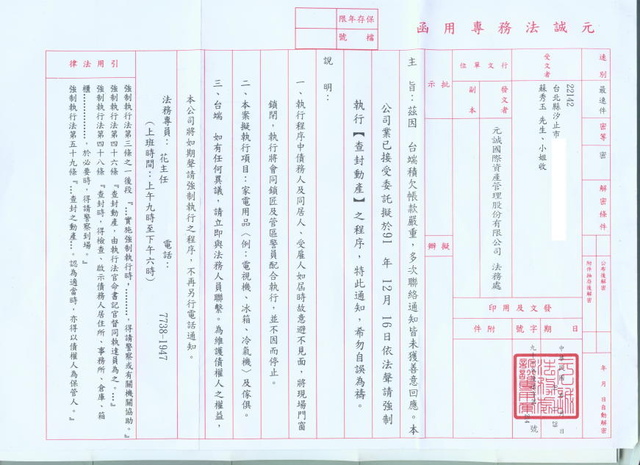 元誠法務專用函
保存年限
檔號
速別
最速件
密等
密
解密條件
公布後解密
附件抽存後解密
年 月 日自動解密
受文者
22142
台北縣汐止市
蘇秀玉 先生、小姐收
行文單位
發文者
副本
元誠國際資產管理股份有限公司 法務處
發文及用印
日期
字號
附件
批示
擬辦
主 旨：茲因 台端積欠帳款嚴重，多次聯絡通知皆未獲善意回應。本
公司業已接受委託擬於91 年 12 月 16 日依法聲請強制
執行【查封動產】之程序，特此通知，希勿自誤為禱。
說 明：
一、執行程序中債務人及同居人、受雇人如屆時故意避不見面，將現場門窗
鎖閉，執行將會同鎖匠及管區警員配合執行，並不因而停止。
二、本案擬執行項目：家電用品（例：電視機、冰箱、冷氣機）及傢俱。
三、台端 如有任何異議，請立即與法務人員聯繫。為維護債權人之權益，
本公司將如期聲請強制執行之程序，不再另行電話通知。
法務專員： 花主任 電話： 7738-1947
（上班時間：上午九時至下午六時）
引用法律
強制執行法第三條之一後段『…實施強制執行時，………得請警察或有關機關協助。』
強制執行法第四十六條『查封動產，由執行法官命書記官督同執達員為之。…』
強制執行法第四十八條『查封時，得檢查、啟示債務人居住所、事務所、倉庫、箱
櫃…………。於必要時，得請警察到場。』
強制執行法第五十九條『…查封之動產…。認為適當時，亦得以債權人為保管人。』